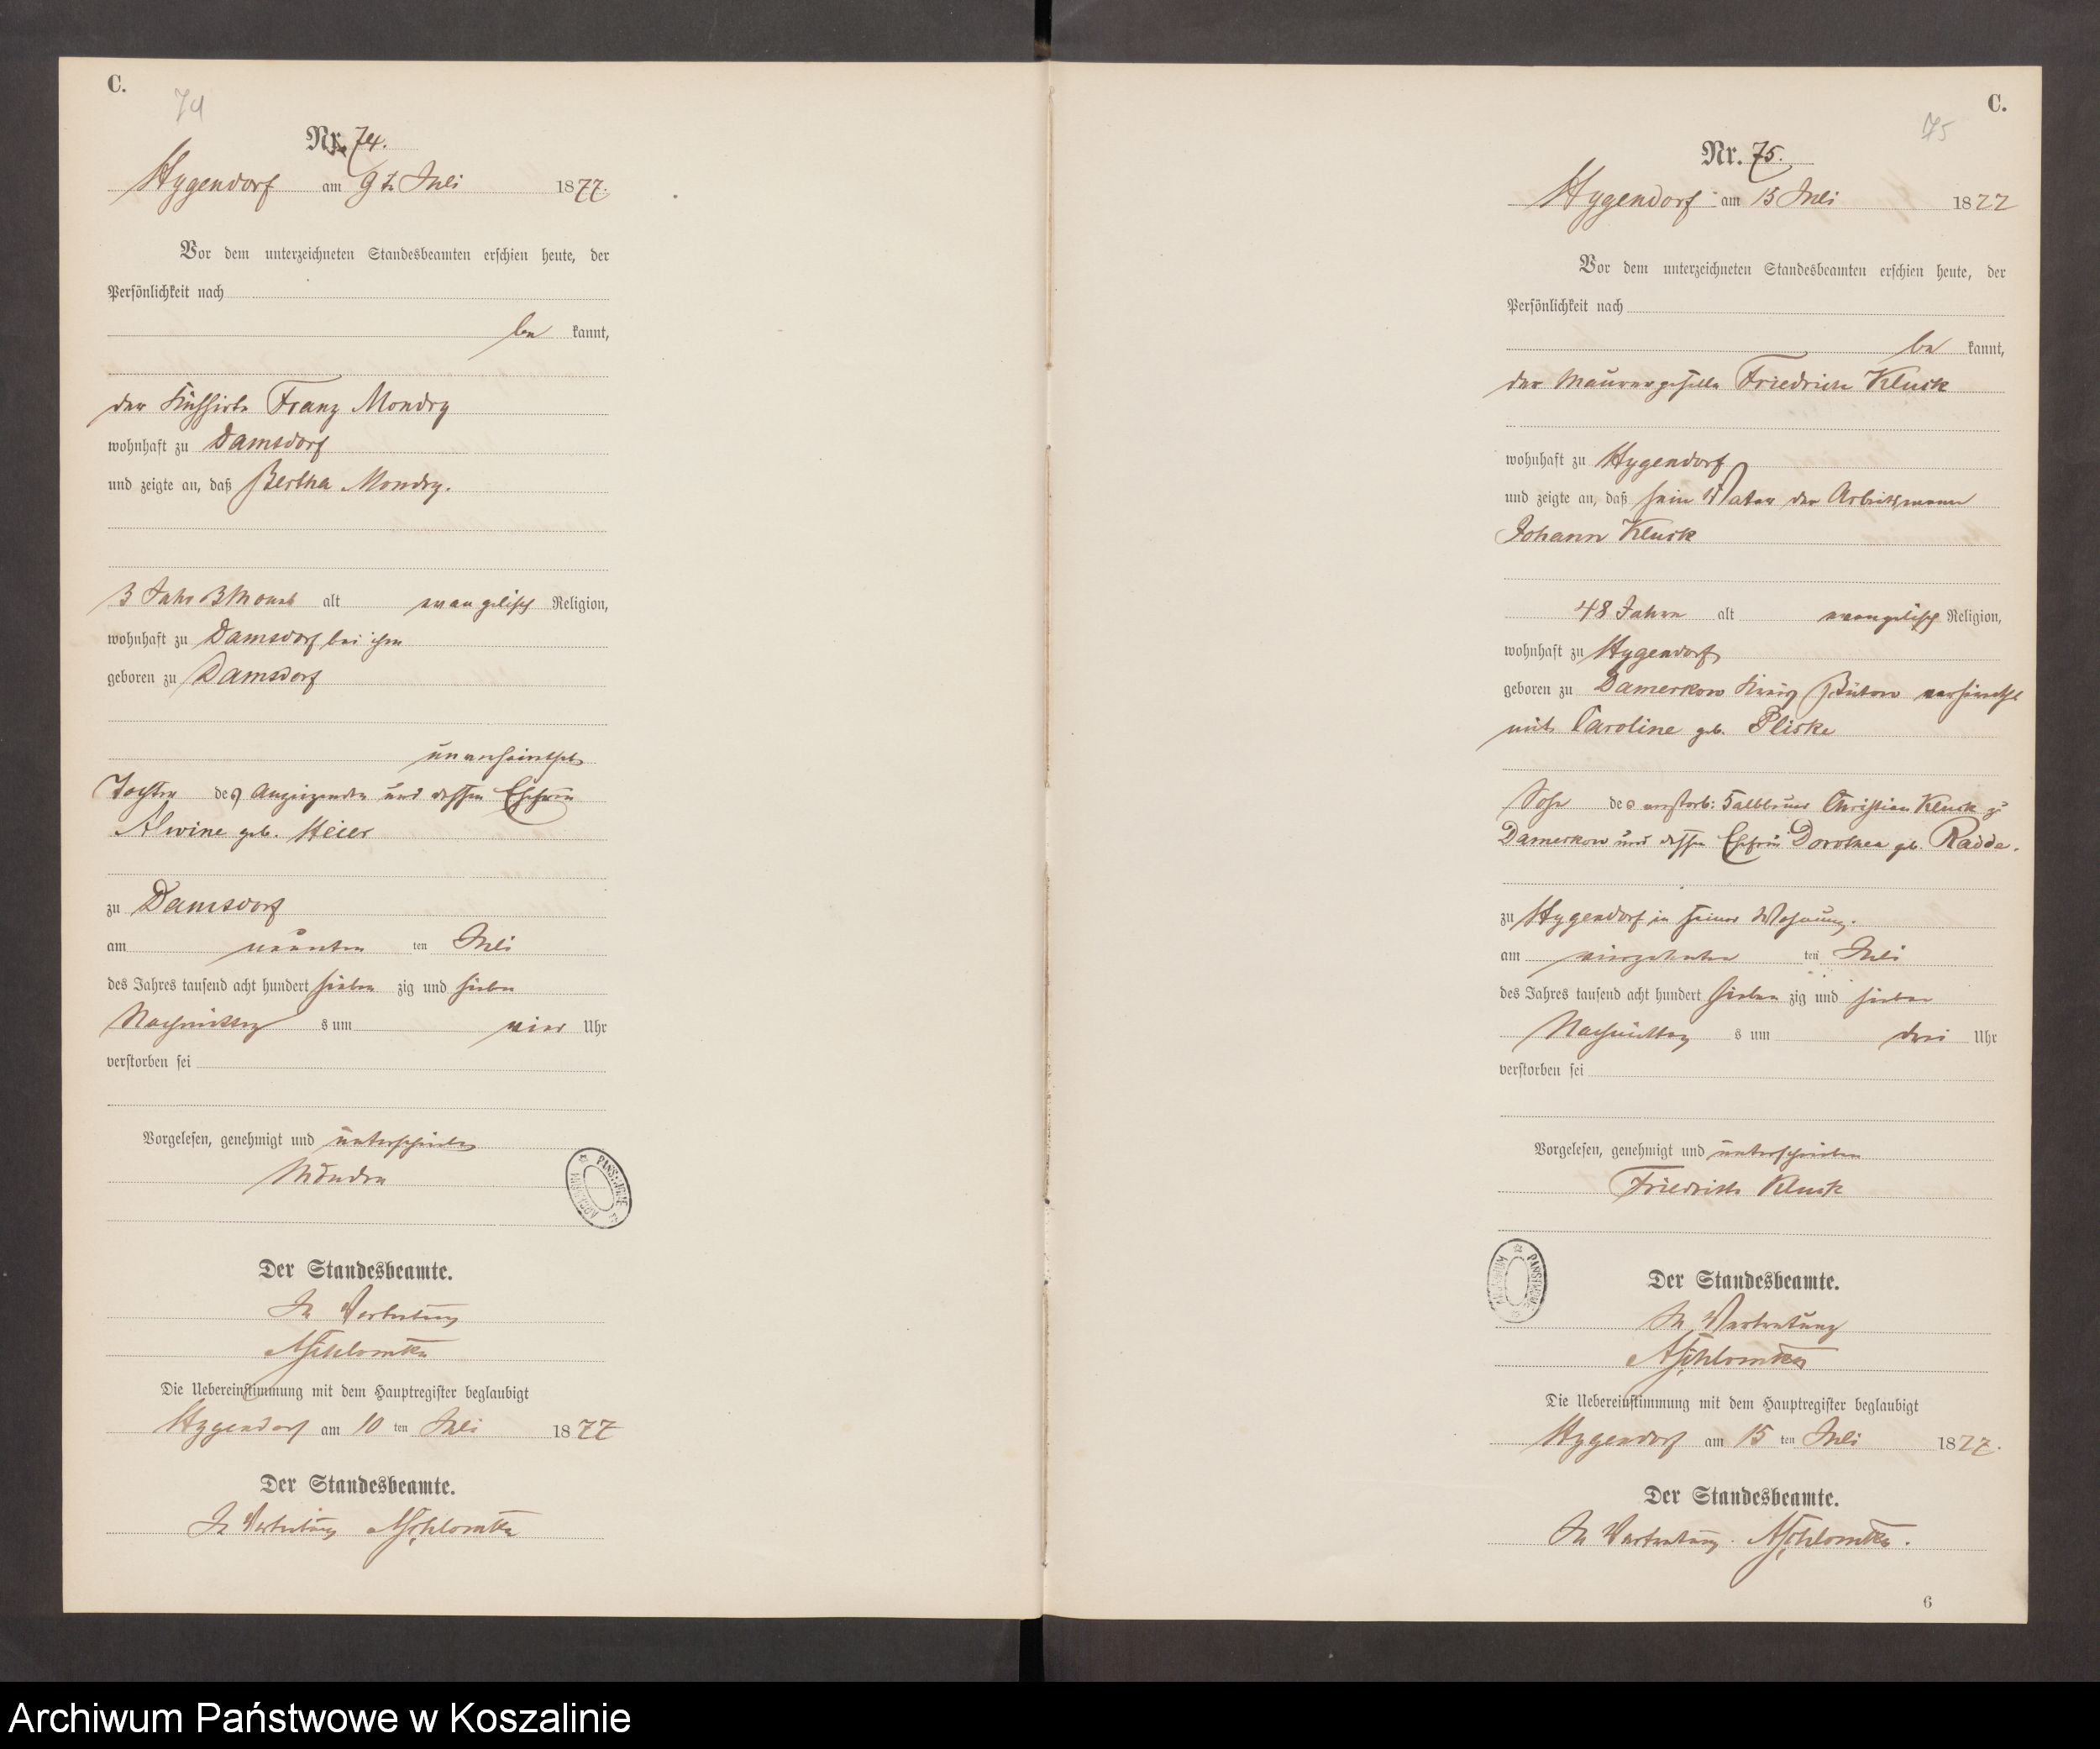 C.
74
Nr. 74.
Hygendorf am 9t Juli 1877.
Vor dem unterzeichneten Standesbeamten erschien heute, der
Persönlichkeit nach
be kannt,
der Kuhhirte Franz Mondry
wohnhaft zu Damsdorf
und zeigte an, daß Bertha Mondry.
3 Jahr 3 Monat alt evangelisch Religion,
wohnhaft zu Damsdorf bei ihm
geboren zu Damsdorf
unverheirathet
Tochter des Anzeigenden und dessen Ehefrau
Alwine geb. Heier
zu Damsdorf
am neunten ten Juli
des Jahres tausend acht hundert sieben zig und sieben
Nachmittag s um vier Uhr
verstorben sei
Vorgelesen, genehmigt und unterschrieben
Der Standesbeamte.
In Vertretung
Die Uebereinstimmung mit dem Hauptregister beglaubigt
Hygendorf am 10 ten Juli 1877
Der Standesbeamte.
In Vertretung
C.
75
Nr. 75.
Hygendorf am 15 Juli 1877
Vor dem unterzeichneten Standesbeamten erschien heute, der
Persönlichkeit nach
be kannt,
der Maurergeselle Friedrich Kluck
wohnhaft zu Hygendorf
und zeigte an, daß sein Vater der Arbeitsmann
Johann Kluck
48 Jahre alt evangelisch Religion,
wohnhaft zu Hygendorf
geboren zu Damerkow Kreis Bütow verheirathet
mit Caroline geb. Pliske
Sohn des verstorb: Christian Kluck zu
Damerkow und dessen Ehefrau Dorothea geb. Radde.
zu Hygendorf in seiner Wohnung.
am vierzehnten ten Juli
des Jahres tausend acht hundert sieben zig und sieben
Nachmittag s um drei Uhr
verstorben sei
Vorgelesen, genehmigt und unterschrieben
Friedrich Kluck
ARCHIWUM PAŃSTWOWE
Der Standesbeamte.
In Vertretung
Die Uebereinstimmung mit dem Hauptregister beglaubigt
Hygendorf am 15 ten Juli 1877.
Der Standesbeamte.
In Vertretung
6
Archiwum Państwowe w Koszalinie